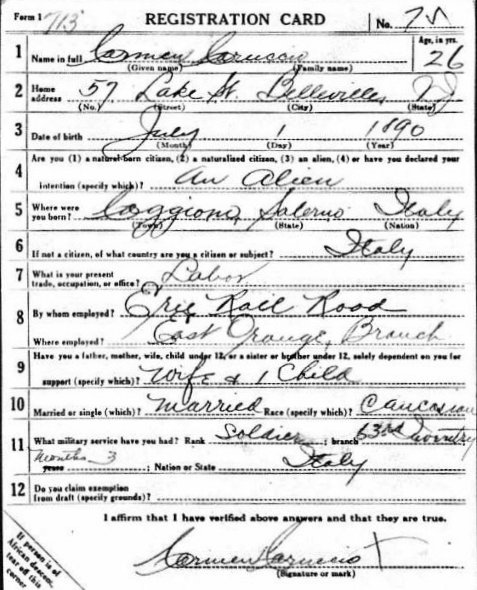 Form 1 713 REGISTRATION CARD No. 75
1 Name in full Carmen Carusoo Age, in yrs. 26
(Given name) (Family name)
2 Home address 57 Lake St. Belleville, NJ
(No.) (Street) (City) (State)
3 Date of birth July 1 1890
(Month) (Day) (Year)
Are you (1) a natural-born citizen, (2) a naturalized citizen, (3) an alien, (4) or have you declared your
4 intention (specify which)? an Alien
5 Where were you born? Caggiono, Salerno Italy
(Town) (State) (Nation)
6 If not a citizen, of what country are you a citizen or subject? Italy
7 What is your present trade, occupation, or office? Labor
8 By whom employed? Erie Rail Road
Where employed? East Orange, Branch
9 Have you a father, mother, wife, child under 12, or a sister or brother under 12, solely dependent on you for
support (specify which)? Wife & 1 Child
10 Married or single (which)? Married Race (specify which)? Caucasian
11 What military service have you had? Rank Soldier ; branch 63rd Infantry
months 3
years ; Nation or State Italy
12 Do you claim exemption from draft (specify grounds)?
I affirm that I have verified above answers and that they are true.
Carmen
(Signature or mark)
If person is of
African descent,
tear off this
corner